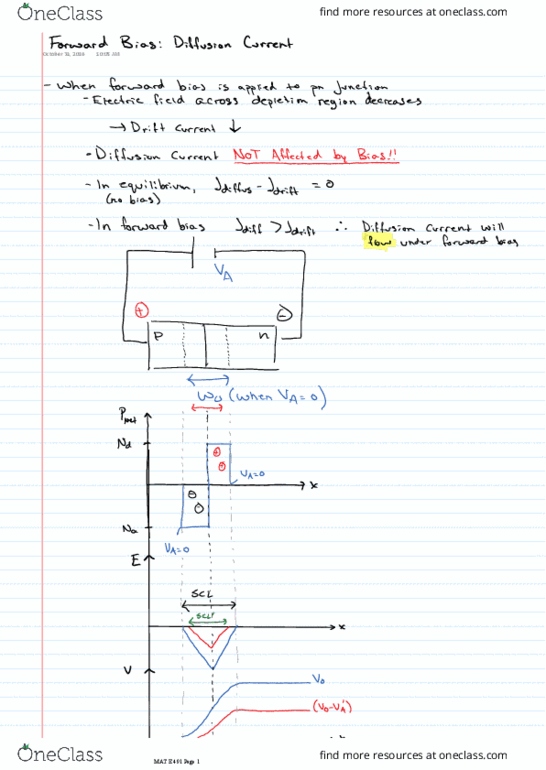 OneClass
find more resources at oneclass.com
Forward Bias: Diffusion Current
October 31, 2016
- When forward bias is applied to pn junction
- Electric field across depletion region decreases
→ Drift Current ↓
- Diffusion Current NOT Affected by Bias!!
- In equilibrium, Jdiffus - Jdrift = 0
(no bias)
- In forward bias Jdiff > Jdrift ∴ Diffusion Current will
flow under forward bias
VA
+ -
P n
W0 (when VA=0)
Pnet
Nd
+
+
VA=0
x
-
-
Na
VA=0
E
SCL
SCL'
x
V
V0
(V0-VA')
OneClass
MAT E491 Page 1
find more resources at oneclass.com